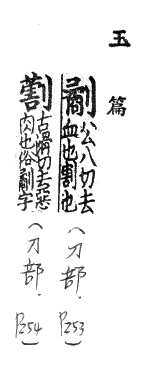 玉篇
劀
公八切去
血也割也
(刀部.P253)
古猾切去惡
肉也俗劀字
(刀部.P254)